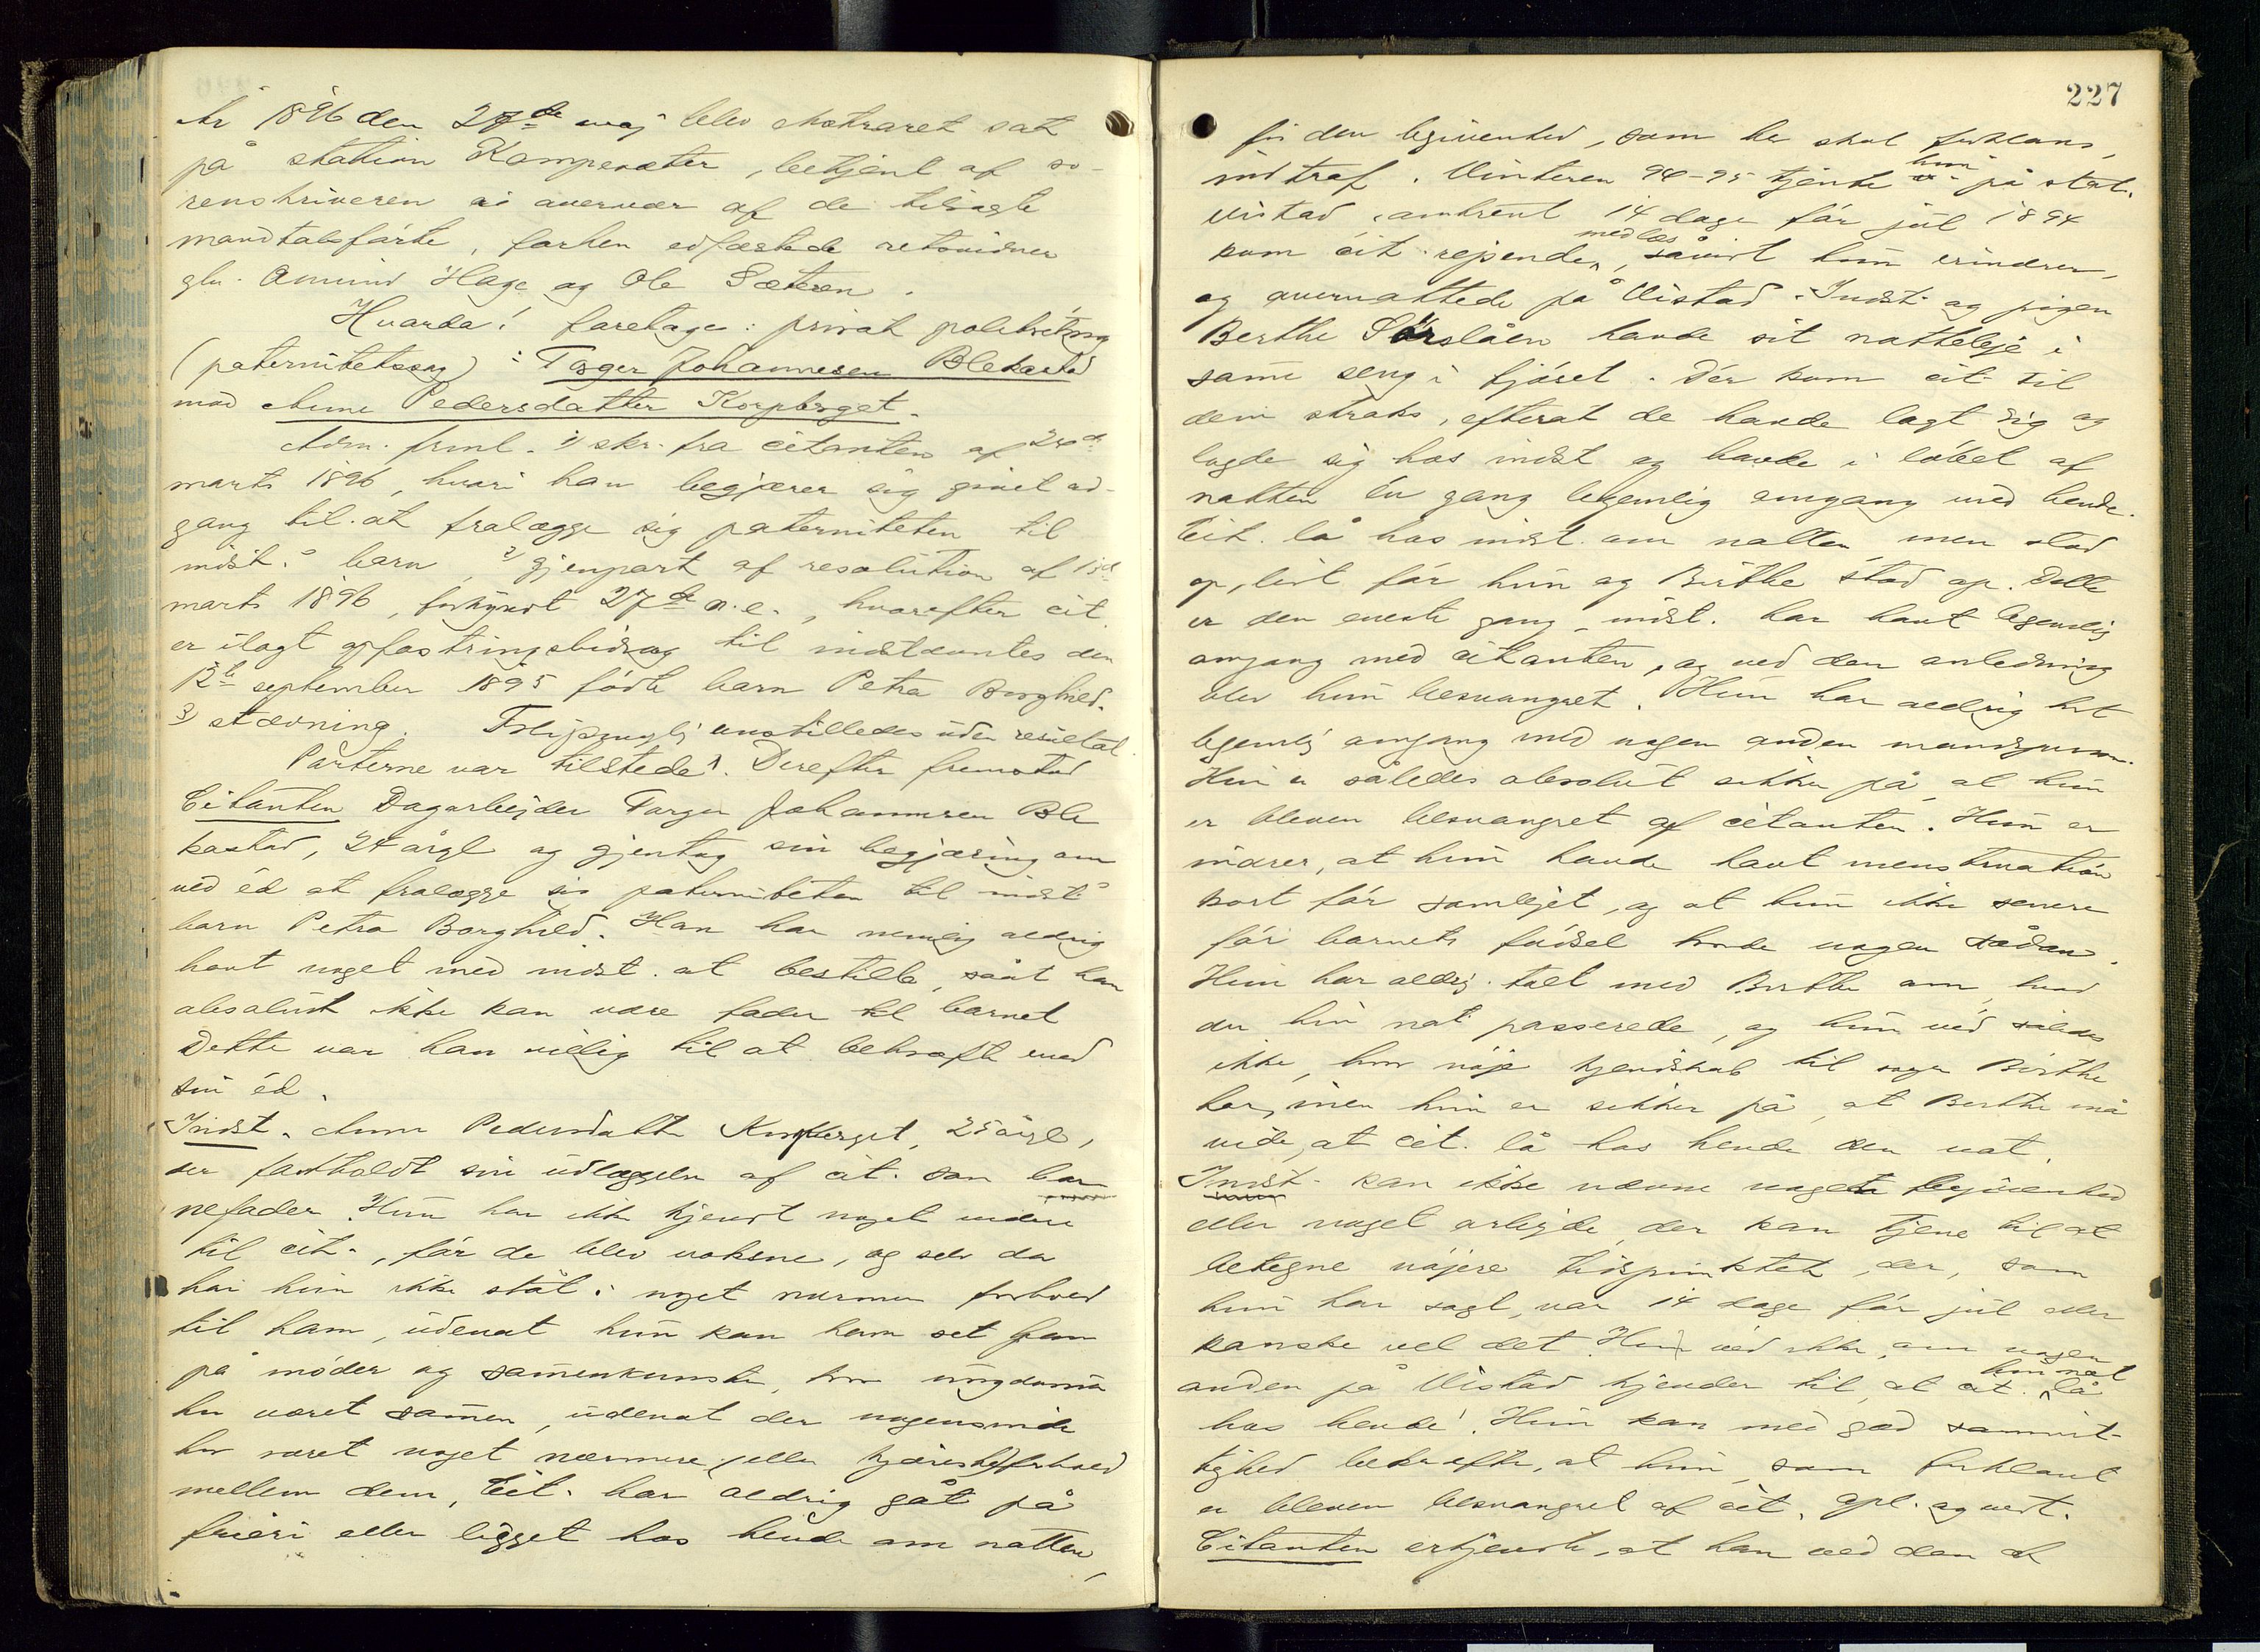 År 1896 den 27de maj blev ekstraret sat
på station Kampesæter, betjent af so-
renskriveren i overvær af de tilsagte
mandtalsførte, forhen edfæstede retsvidner
Amund Hage og Ole Sæteren.
Hvorda! foretoges: privat politiretssag
(paternitetssag): Torger Johannesen Blekastad
mod Anne Pedersdatter Korpberget.
Adm. freml. 1) skr. fra citanten af
marts 1896, hvori han begjærer sig givet ad-
gang til at fralægge sig paterniteten til
indst.s barn, 2) gjenpart af resolution af
marts 1896, forkyndt 27de n.e., hvorefter cit.
er ilagt opfostringsbidrag til indstævntes den
12te september 1895 fødte barn Petra Borghild.
3) stævning. Forligsmægl. anstilledes uden resultat.
Parterne var tilstede. Derefter fremstod
Citanten Dagarbejder Torger Johannesen Ble
kastad, 24 årgl. og gjentog sin begjæring om
ved éd at fralægge sig paterniteten til indst.s
barn Petra Borghild. Han har nemlig aldrig
havt noget med indst. at bestille, såat han
absolut ikke kan være fader til barnet
Dette var han villig til at bekræfte med
sin éd.
Indst. Anne Pedersdatter Korpberget, 25 årgl.,
der fastholdt sin udlæggelse af cit. som bar
nefader. Hun har ikke kjendt noget videre
til cit., før de blev voksne, og selv da
har hun ikke ståt i noget nærmere forhold
til ham, udenat hun kan have set ham
på møder og sammenkomster, hvor ungdommen
har været sammen, udenat der nogensinde
har været noget nærmere (eller kjæreste)forhold
mellem dem, Cit. har aldrig gåt på
frieri eller ligget hos hende om natten,
227
før den begivenhed, som her skal forklares,
indtraf. Vinteren 94-95 tjente hun på stat.
Vistad, omtrent 14 dage før jul 1894
kom cit. rejsende med læs, såvidt hun erindrer,
og overnattede på Vistad. Indst. og pigen
Berthe Sørslåen havde sit natteleje i
samme seng i fjøset. Dér kom cit. til
dem straks, efterat de havde lagt sig og
lagde sig hos indst. og havde i løbet af
natten én gang legemlig omgang med hende.
Cit. lå hos indst. om natten, men stod
op, lidt før hun og Berthe stod op. Dette
er den eneste gang, indst. har havt legemlig
omgang med citanten, og ved den anledning
blev hun besvangret. Hun har aldrig havt
legemlig omgang med nogen anden mandsperson.
Hun er således absolut sikker på, at hun
er bleven besvangret af citanten. Hun er
indrer, at hun havde havt menstruation
kort før samlejet, og at hun ikke senere
før barnets fødsel havde nogen sådan.
Hun har aldrig talt med Berthe om, hvad
der hin nat passerede, og hun ved således
ikke, hvor nøje kjendskab til sagen Berthe
har, men hun er sikker på, at Berthe må
vide, at cit. lå hos hende den nat.
Indst. kan ikke nævne nogen begivenhed
eller noget arbejde, der kan tjene til at
betegne nøjere tidspunktet, der, som
hun har sagt, var 14 dage før jul eller
kanske vel det. Hun ved ikke, om nogen
anden på Vistad kjender til, at cit. hin nat lå
hos hende. Hun kan med god samvit-
tighed bekræfte, at hun, som forklaret
er bleven besvangret af cit. opl. og vedt.
Citanten erkjendte, at han ved den af